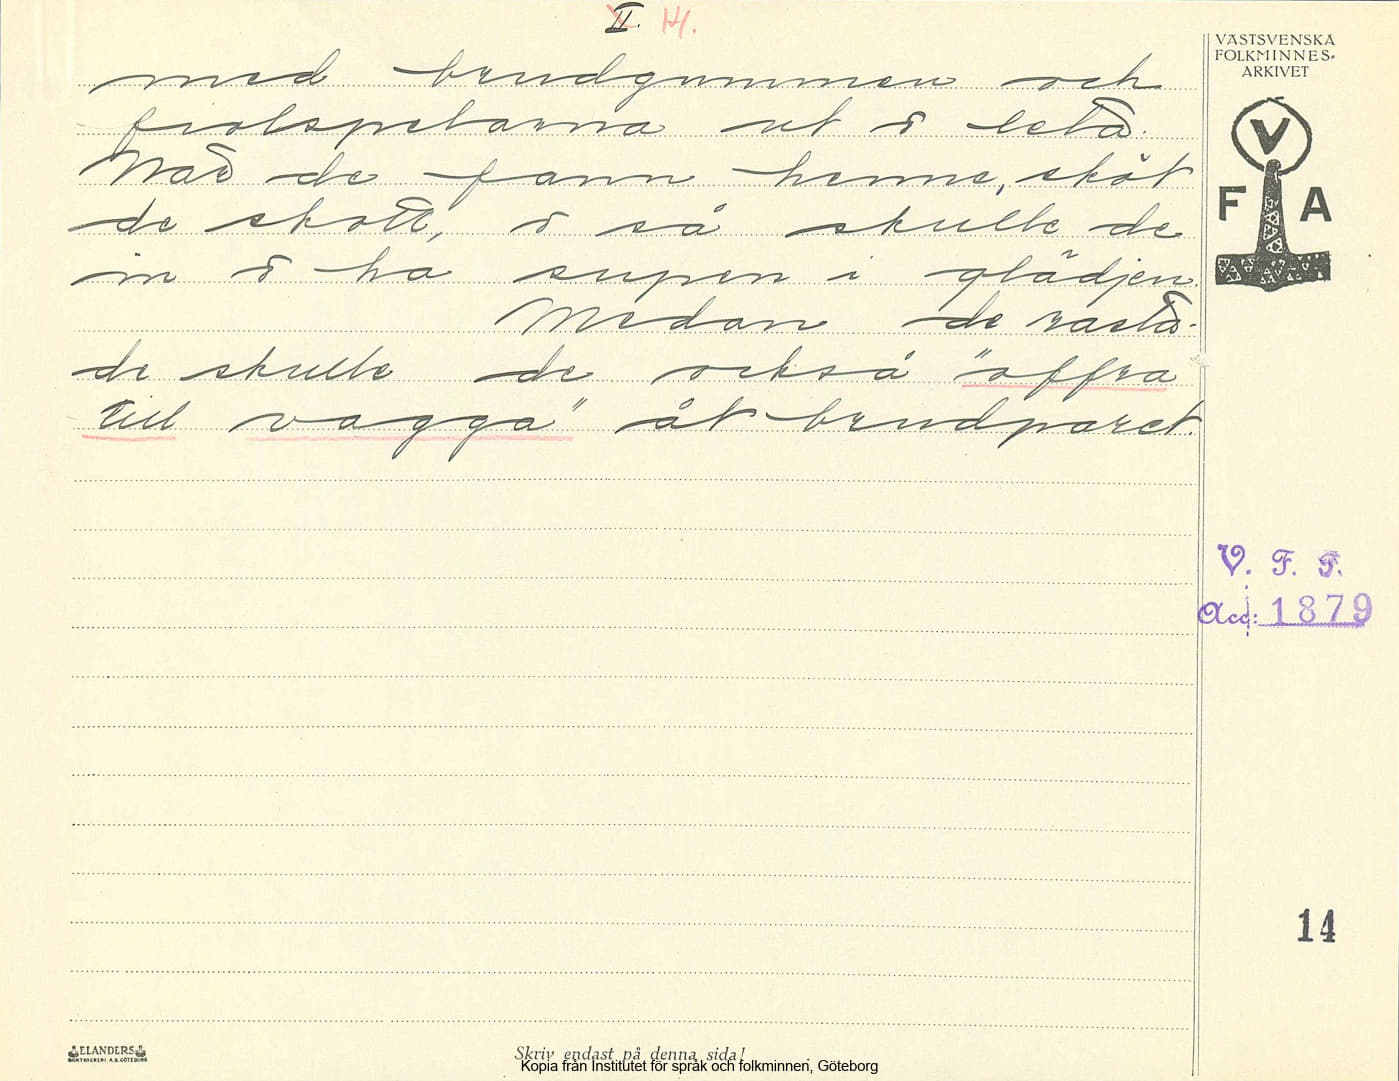 II. H.
med brudgummen och
fiolspelarna ut o leta.
När de fann henne, sköt
de skott, o så skulle de
in o ha supen i glädjen.
Medan de rasta-
de skulle de också "offra
till vagga" åt brudparet.
VÄSTSVENSKA
FOLKMINNES-
ARKIVET
V
F A
V. F. F.
Acc: 1879
14
ELANDERS
BOKTRYCKERI A.B. GÖTEBORG
Skriv endast på denna sida!
Kopia från Institutet för språk och folkminnen, Göteborg